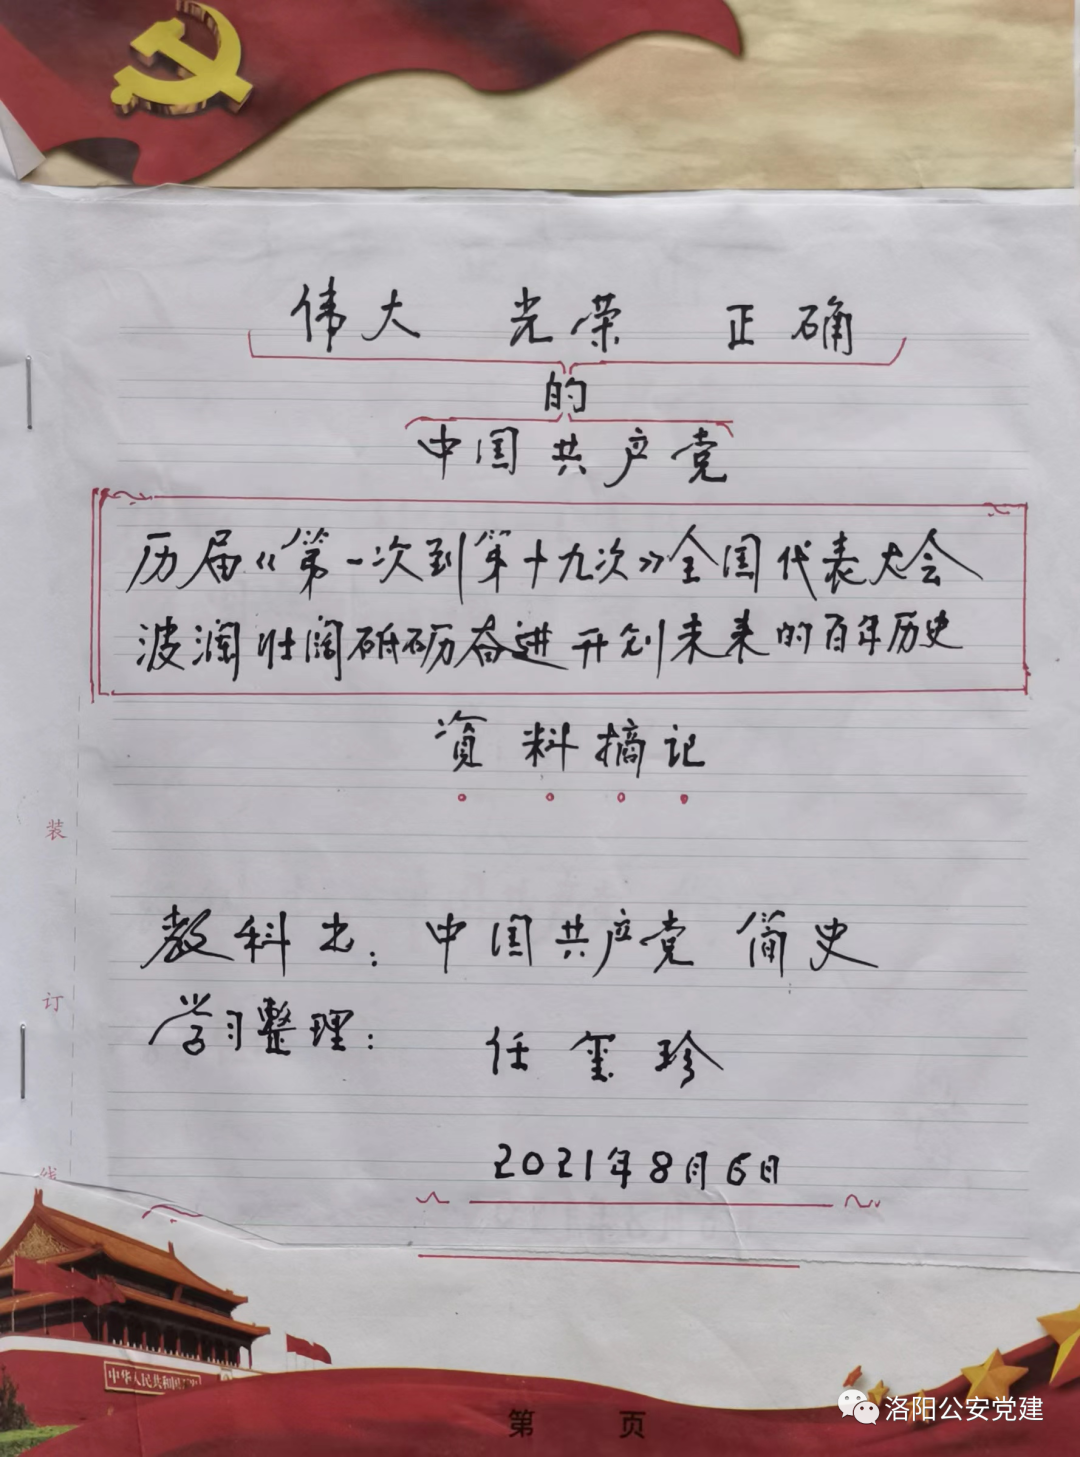 伟大 光荣 正确
的
中国共产党
历届《第一次到第十九次》全国代表大会
波澜壮阔砥砺奋进开创未来的百年历史
资料摘记
装
教科书:中国共产党 简史
订
学习整理: 任玺珍
2021年8月6日
线
中华人民共和国
第 页
洛阳公安党建